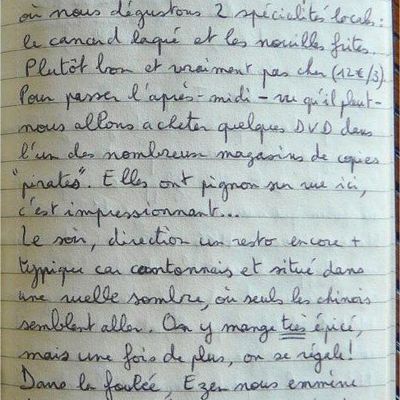 où nous dégustons 2 spécialités locales :
le canard laqué et les nouilles frites.
Plutôt bon et vraiment pas cher (12€/3).
Pour passer l'après-midi - vu qu'il pleut -
nous allons acheter quelques DVD dans
l'un des nombreux magasins de copies
"pirates". Elles ont pignon sur rue ici,
c'est impressionnant...
Le soir, direction un resto encore +
typique car cantonnais et situé dans
une ruelle sombre, où seuls les chinois
semblent aller. On y mange très épicé,
mais une fois de plus, on se régale !
Dans la foulée, Ezen nous emmène